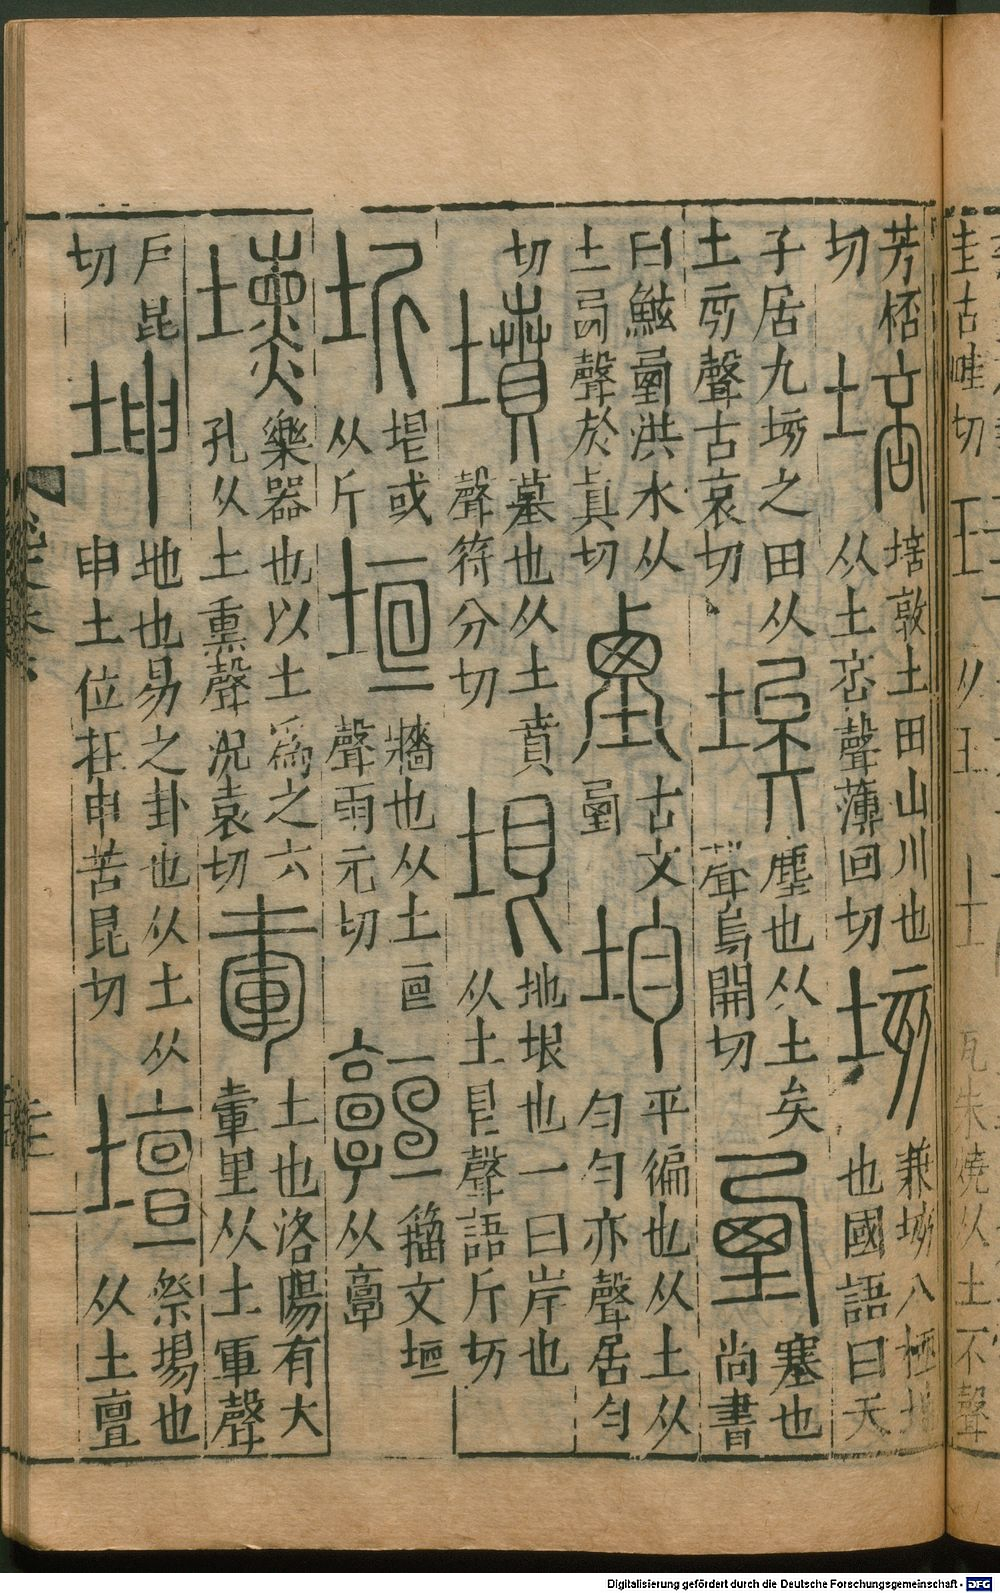 芳桮切
培敦土田山川也从土咅聲薄回切
兼垓八極地也國語曰天子居九垓之田从土亥聲古哀切
塵也从土矣聲烏開切
塞也尚書曰鯀垔洪水从土西聲於眞切
古文垔
平徧也从土从勻勻亦聲居勻切
墓也从土賁聲符分切
地垠也一曰岸也从土艮聲語斤切
垠或从斤
牆也从土亘聲雨元切
籀文垣从𩫖
樂器也以土爲之六孔从土熏聲況袁切
土也洛陽有大𡑍里从土軍聲戶昆切
地也易之卦也从土从申土位在申苦昆切
祭場也从土亶
Digitalisierung gefördert durch die Deutsche Forschungsgemeinschaft - DFG